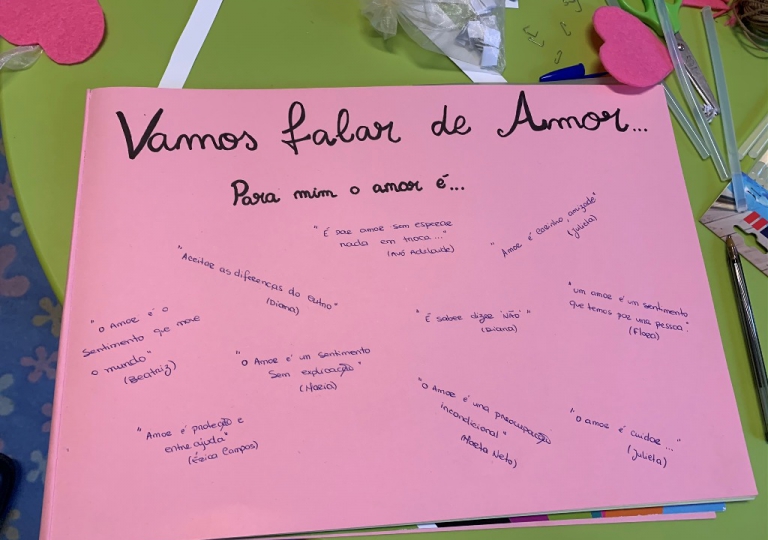 Vamos falar de Amor...
Para mim o amor é...
"É dar amor sem esperar
nada em troca..."
(Avó Adelaide)
"Amor é carinho, amizade"
(Julieta)
"Aceitar as diferenças do outro"
(Diana)
"O Amor é o
sentimento que move
o mundo"
(Beatriz)
"É saber dizer 'NÃO'"
(Diana)
"um amor é um sentimento
que temos por uma pessoa".
(Flor)
"O Amor é um sentimento
sem explicação"
(Maria)
"O Amor é uma preocupação
incondicional"
(Marta Neto)
"O amor é cuidar..."
(Julieta)
"Amor é proteção e
entreajuda"
(Érica Campos)